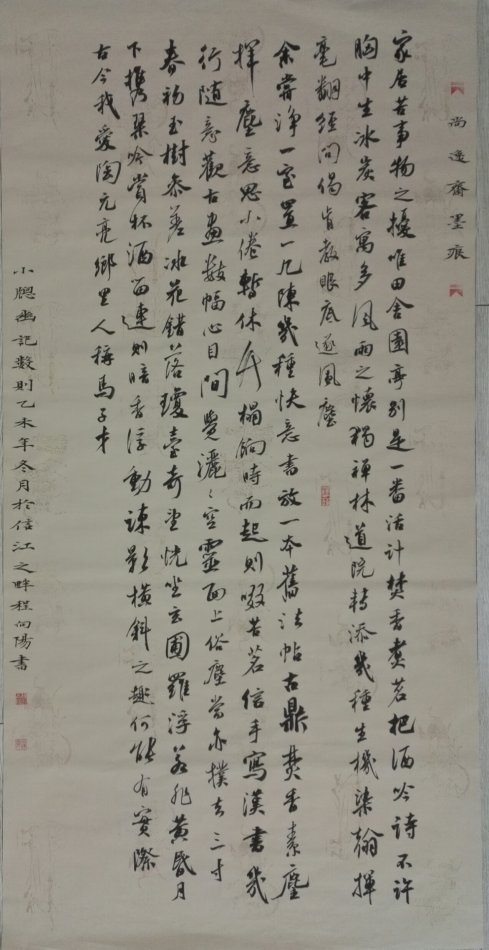 尚逸齋墨痕
家居苦事物之擾唯田舍園亭別是一番活計焚香煮茗把酒吟詩不許
胸中生冰炭客寓多風雨之懷獨禪林道院轉添幾種生機染翰揮
毫翻經問偈肯教眼底逐風塵
余嘗淨一室置一几陳幾種快意書放一本舊法帖古鼎焚香素麈
揮塵意思小倦暫休竹榻餉時而起則啜苦茗信手寫漢書幾
行隨意觀古畫數幅心目間覺灑〻空靈面上俗塵當亦撲去三寸
春初玉樹參差冰花錯落瓊臺奇望恍坐玄圃羅浮若非黃昏月
下攜琴吟賞杯酒留連則暗香浮動疎影橫斜之趣何能有實際
古今我愛陶元亮鄉里人稱馬
小牕幽記數則乙未年冬月於信江之畔程向陽書